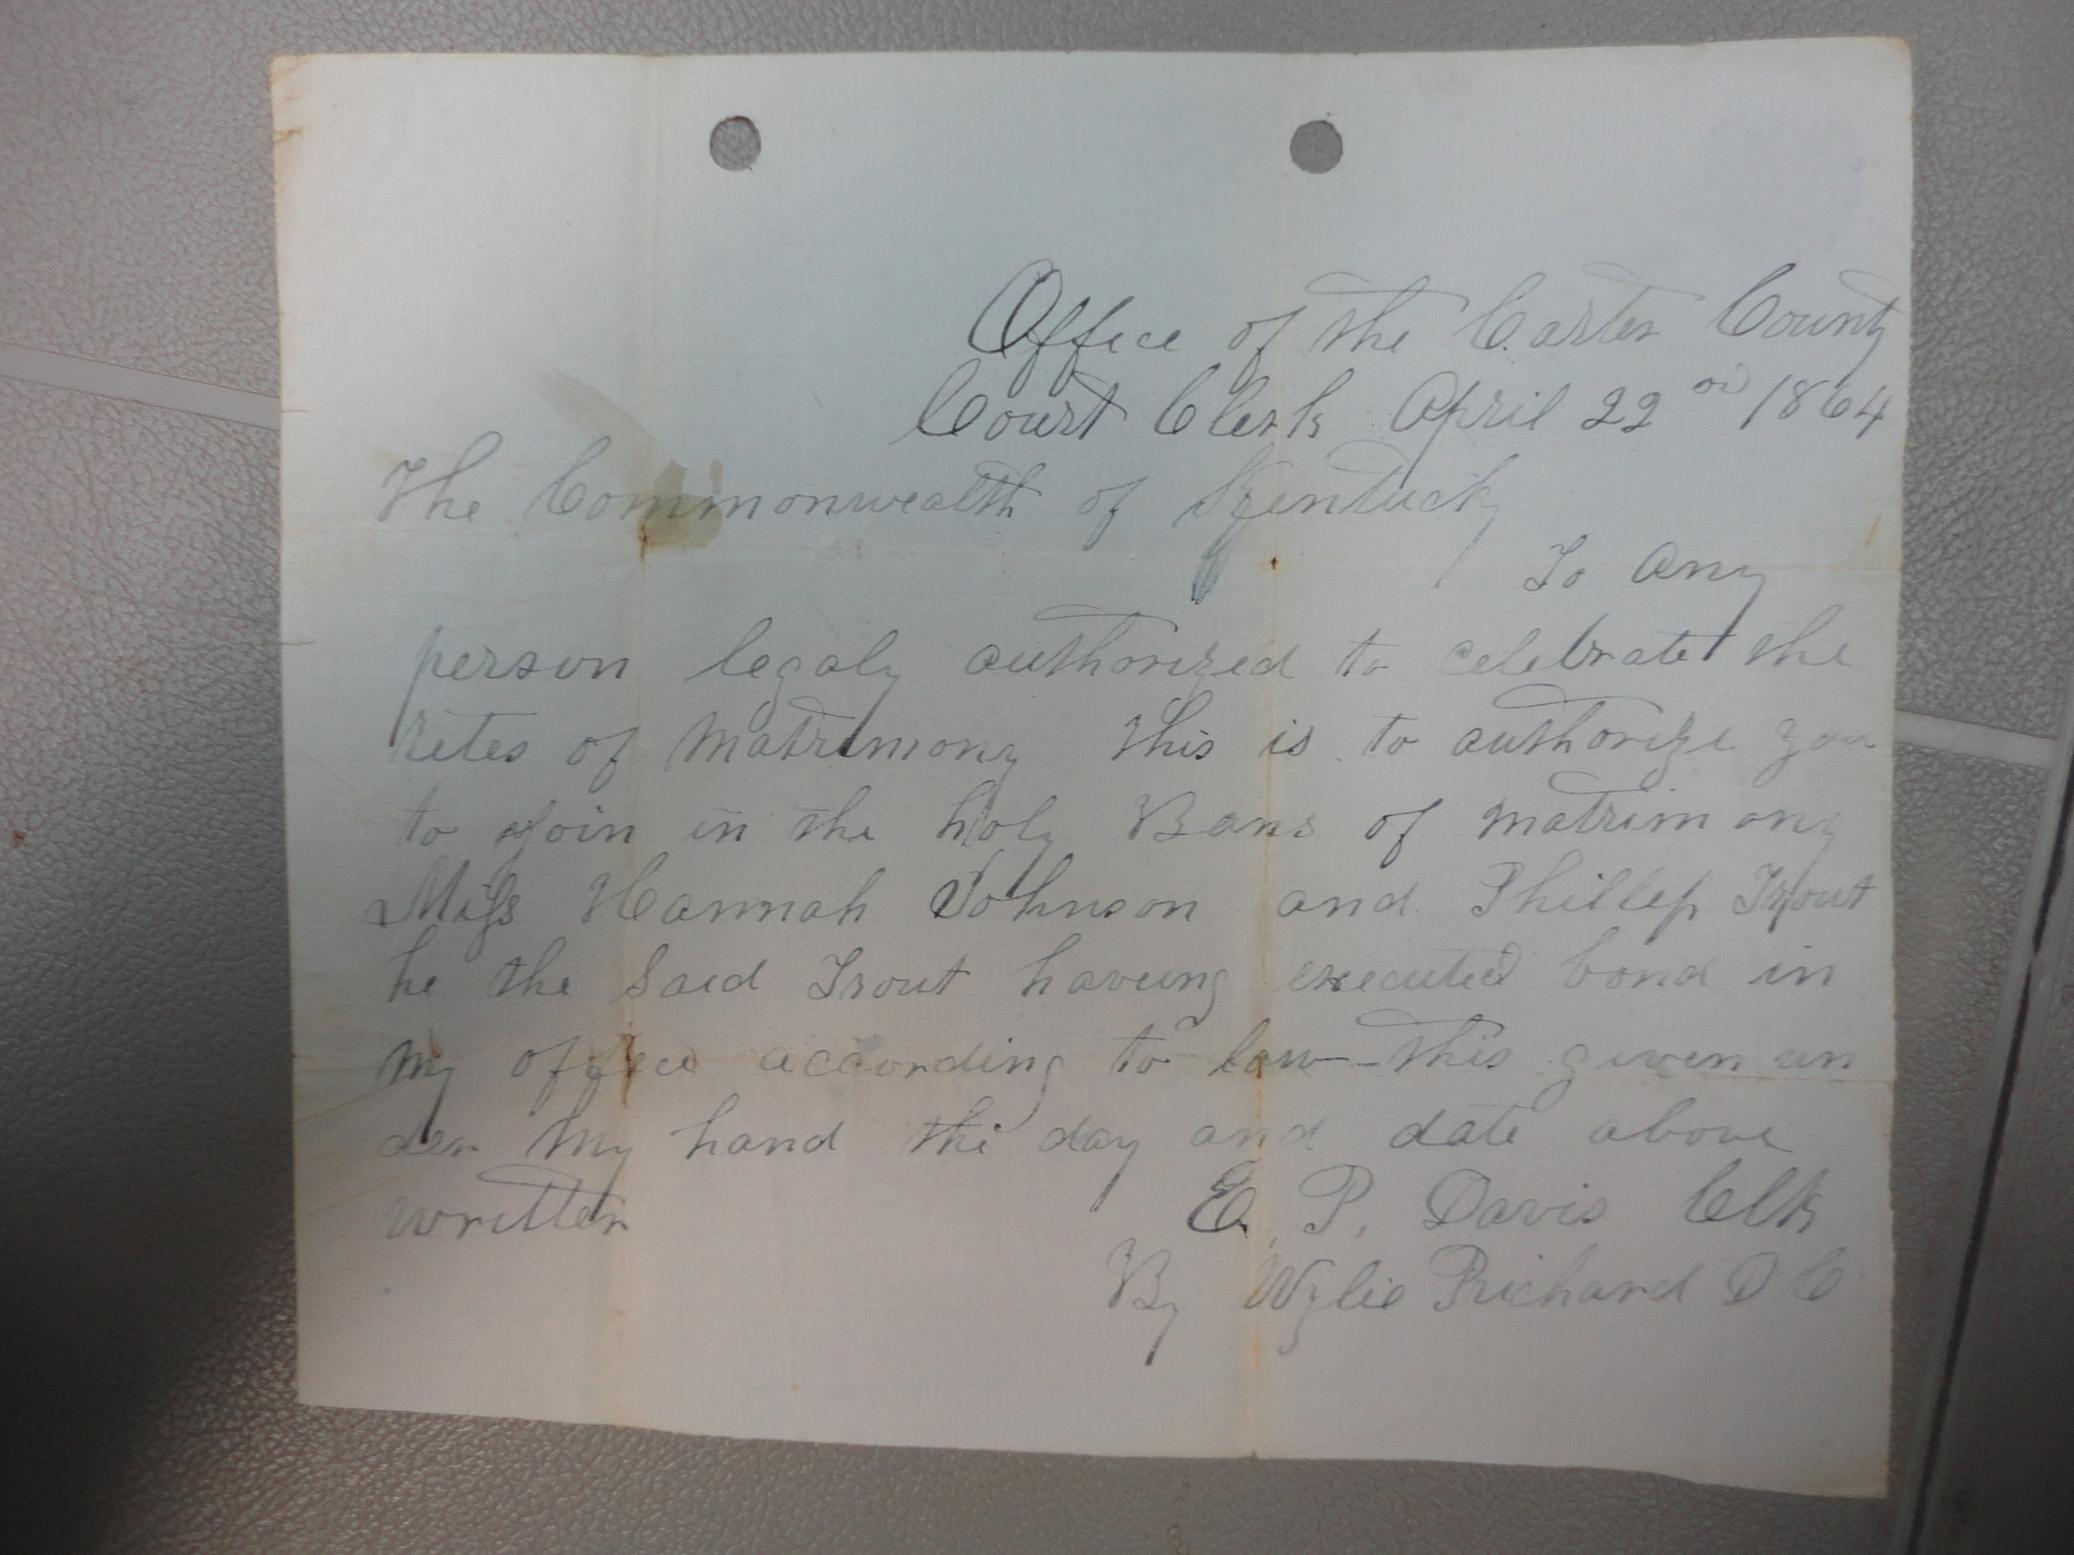 Office of the Carter County
Court Clerk April 22nd 1864
The Commonwealth of Kentucky
To Any
person legaly authorized to celebrate the
rites of Matrimony This is to authorize you
to join in the holy Bans of matrimony
Miss Hannah Johnson and Phillip Trout
he the Said Trout haveing executed bond in
my office according to law - this given un
der my hand the day and date above
written E. P. Davis Clk
By Wylie Prichard D C